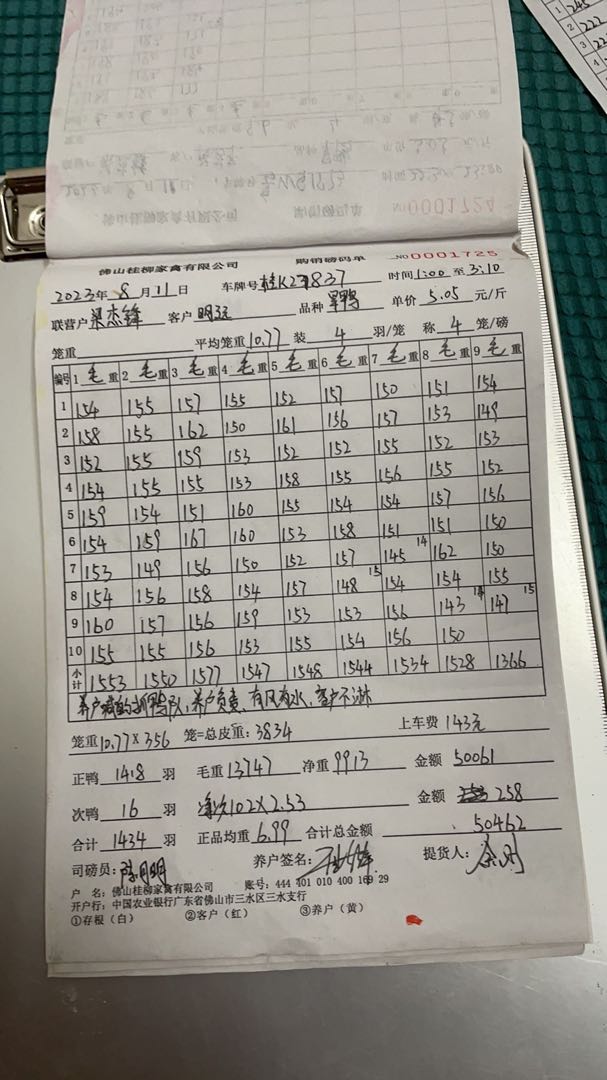 245
222
佛山桂柳家禽有限公司 购销磅码单 NO 0001725
2023年 8月11日 车牌号桂K27837 时间1:00至3:10
联营户 梁杰锋 客户 明记 品种 单价 5.05 元/斤
笼重 平均笼重10.77 装 4 羽/笼 称 4 笼/磅
编号 1毛重 2毛重 3毛重 4毛重 5毛重 6毛重 7毛重 8毛重 9毛重
1 154 155 157 155 152 157 150 151 154
2 158 155 162 150 161 156 157 153 149
3 152 155 159 153 152 152 155 152 153
4 154 155 155 153 158 155 156 155 152
5 159 154 151 160 155 154 154 157 156
6 154 159 167 160 153 158 151 151 150
7 153 149 156 150 152 157 145 14 162 150
8 154 156 158 154 157 148 15 154 154 155
9 160 157 156 159 153 153 156 143 14 147 15
10 155 155 156 153 155 154 156 150
小计 1553 1550 1577 1547 1548 1544 1534 1528 1366
养户喊的抓鸭队，养户负责，有风有水，客户不淋
笼重10.77×356 笼=总皮重：3834 上车费 143元
正鸭 1418 羽 毛重 13747 净重 9913 金额 50061
次鸭 16 羽 102×2.53 金额 258
合计 1434 羽 正品均重 6.99 合计总金额 50462
司磅员： 养户签名： 提货人：
户 名：佛山桂柳家禽有限公司 账号：444 401 010 400 169 29
开户行：中国农业银行广东省佛山市三水区三水支行
①存根（白） ②客户（红） ③养户（黄）